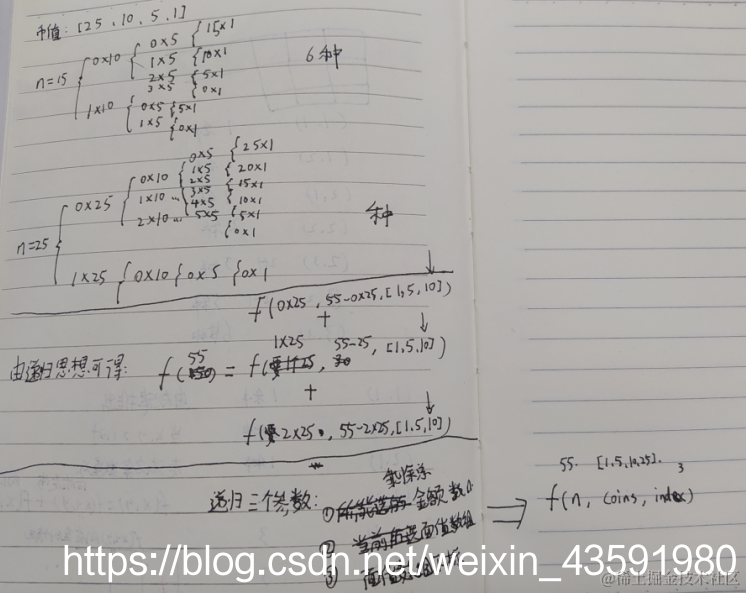 币值: [25, 10, 5, 1]
n=15
0×10
0×5
15×1
1×5
10×1
2×5
5×1
3×5
0×1
1×10
0×5
5×1
1×5
0×1
6种
n=25
0×25
0×10
0×5
25×1
1×5
20×1
2×5
15×1
3×5
10×1
4×5
5×1
5×5
0×1
1×10 ...
2×10 ...
种
1×25
0×10
0×5
0×1
f(0×25, 55-0×25, [1,5,10])
+
由递归思想可得: f(55) = f(1×25, 55-25, [1,5,10])
+
f(2×25, 55-2×25, [1,5,10])
递归三个参数:
① 金额数
② 当前 面值数组
③
⇒
55. [1,5,10,25]. 3
f(n, coins, index)
https://blog.csdn.net/weixin_43591980
@稀土掘金技术社区